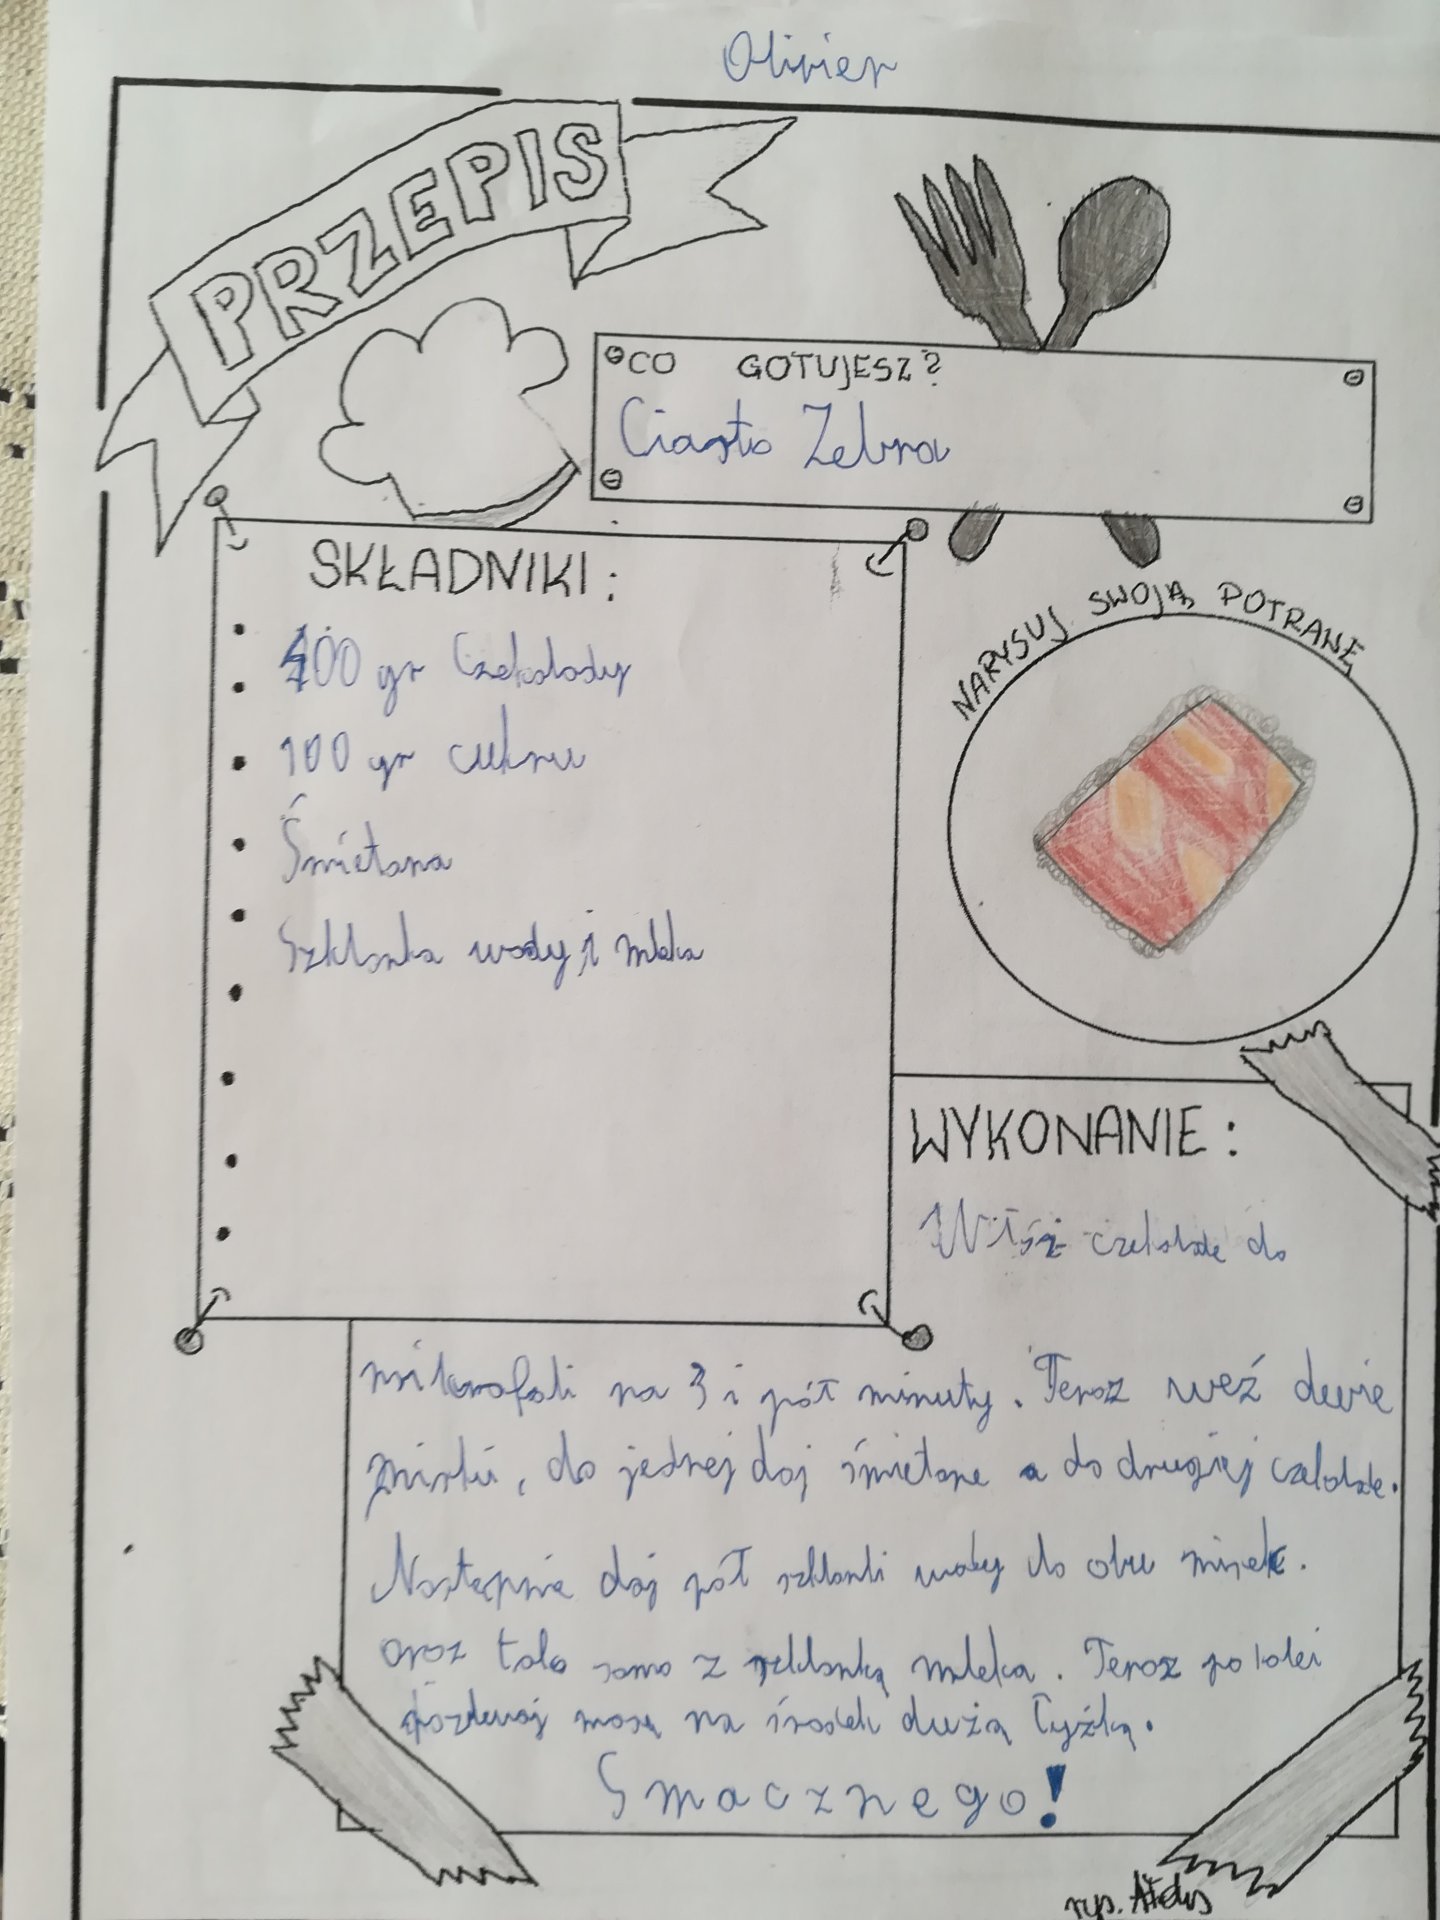 Olivier
PRZEPIS
CO GOTUJESZ?
Ciasto Zebra
SKŁADNIKI:
400 gr Czekolady
100 gr cukru
Śmietana
Szklanka wody i mleka
NARYSUJ SWOJĄ POTRAWĘ
WYKONANIE:
Włóż czekolade do
mikrofali na 3 i pół minuty. Teraz weź dwie
miski, do jednej daj śmietane a do drugiej czekolade.
Następnie daj pół szklanki wody do obu misek.
oraz tako samo z szklanką mleka. Teraz po kolei
masą na środek dużą łyżką.
Smacznego!
rys.